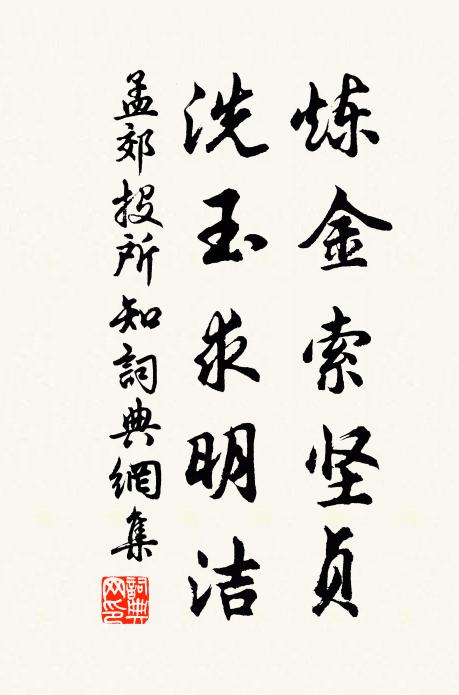 炼金索坚贞
洗玉求明洁
孟郊投所知詞典網集
詞典网印